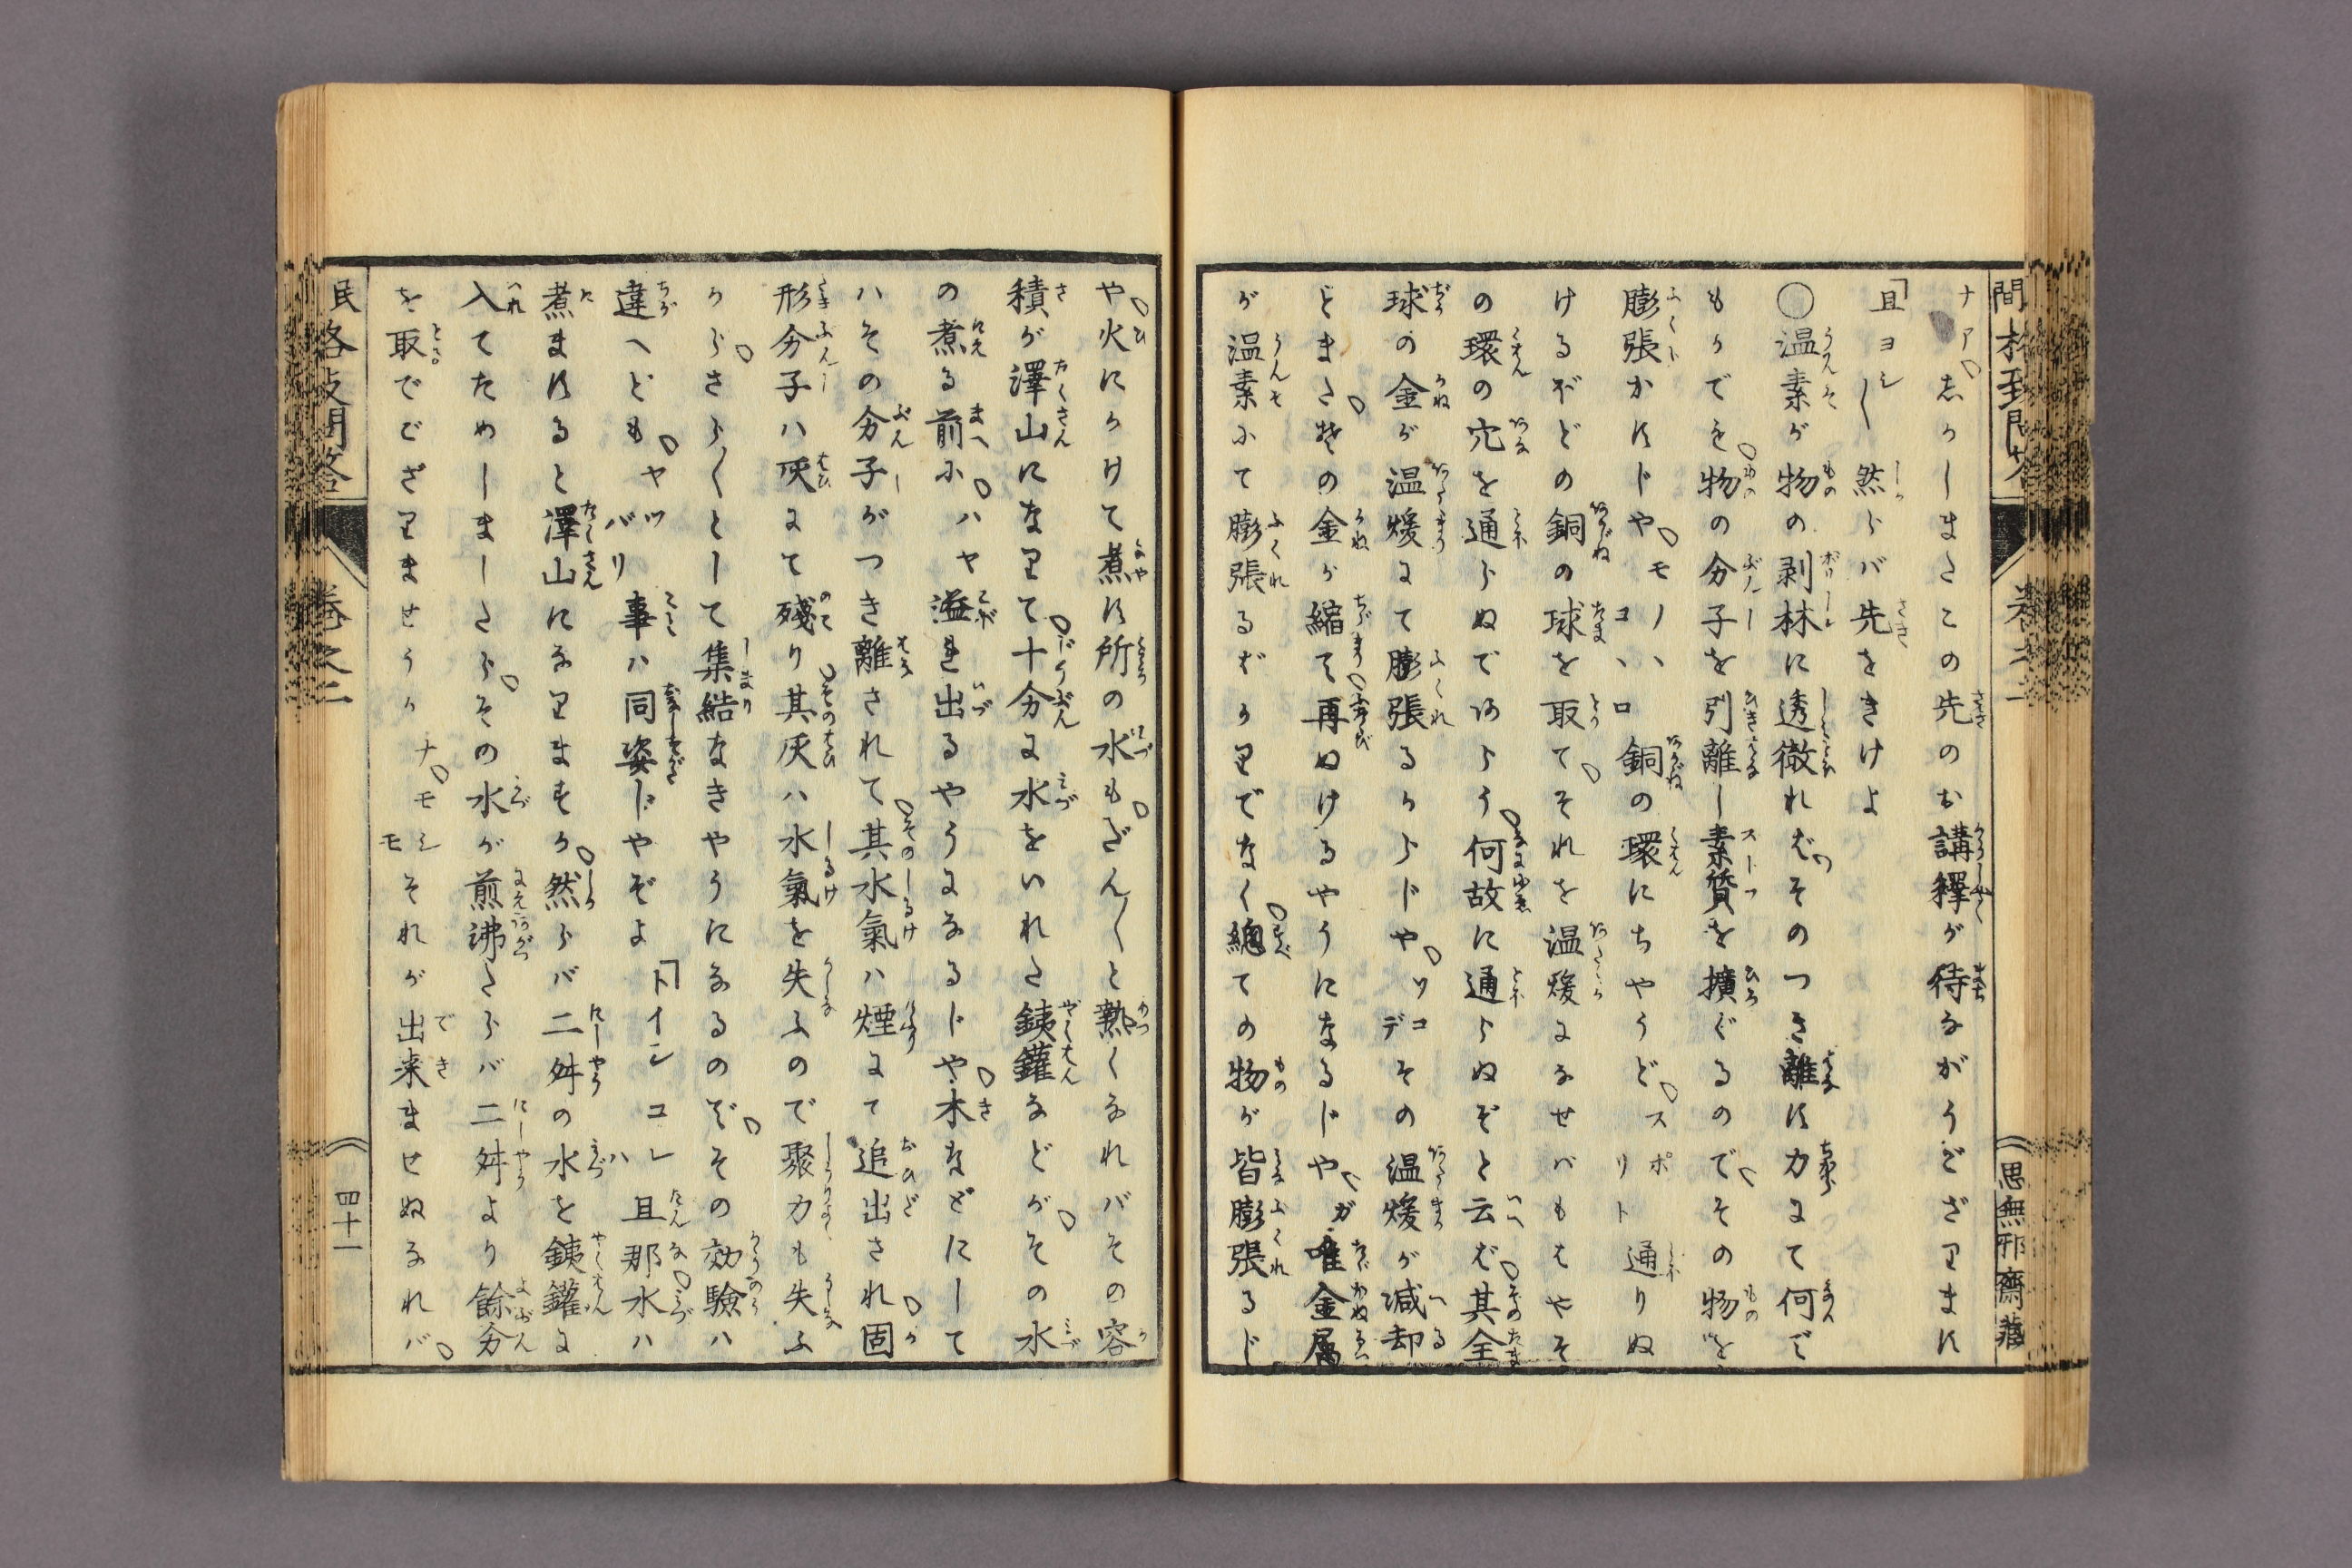 ナア志かしまたこの先のお講釋が待ながうございます
「且ヨシ〳〵然らバ先をきけよ
○温素が物の剥林に透徹ればそのつき離す力にて何でも
もかでも物の分子を引離し素質を擴ぐるのでその物を
膨張かすじやモノヽコヽロ銅の環にちやうどスポリト通りぬ
けるほどの銅の球を取てそれを温煖になせバもはやそ
の環の穴を通らぬであらう何故に通らぬぞと云ば其全
球の金が温煖にて膨張るからじやソコデその温煖が減却
ときたその金が縮て再ぬけるやうになるじやガ唯金属
が温素にて膨張るばかりでなく總ての物が皆膨張るじ
や火にかけて煮す所の水もざん〳〵と熱くなれバその容
積が澤山になりて十分に水をいれた銕鑵などがその水
の煮る前にハヤ溢れ出るやうになるじや木などにして
ハその分子がつき離されて其水氣ハ煙にて追出され固
形分子ハ灰にて残り其灰ハ水氣を失ふので聚力も失ふ
からさら〳〵として集結なきやうになるのぞその効驗ハ
違へどもヤツバリ事ハ同姿じやぞよ「トイシコレハ且那水ハ
煮ますると澤山になりますか然らバ二舛の水を銕鑵に
入てためしましたらその水が煎沸たらバ二舛より餘分
を取でござりませうかナモシモシそれが出来ませぬなれバ
民格致問答
卷之二
四十一
思無邪齋藏